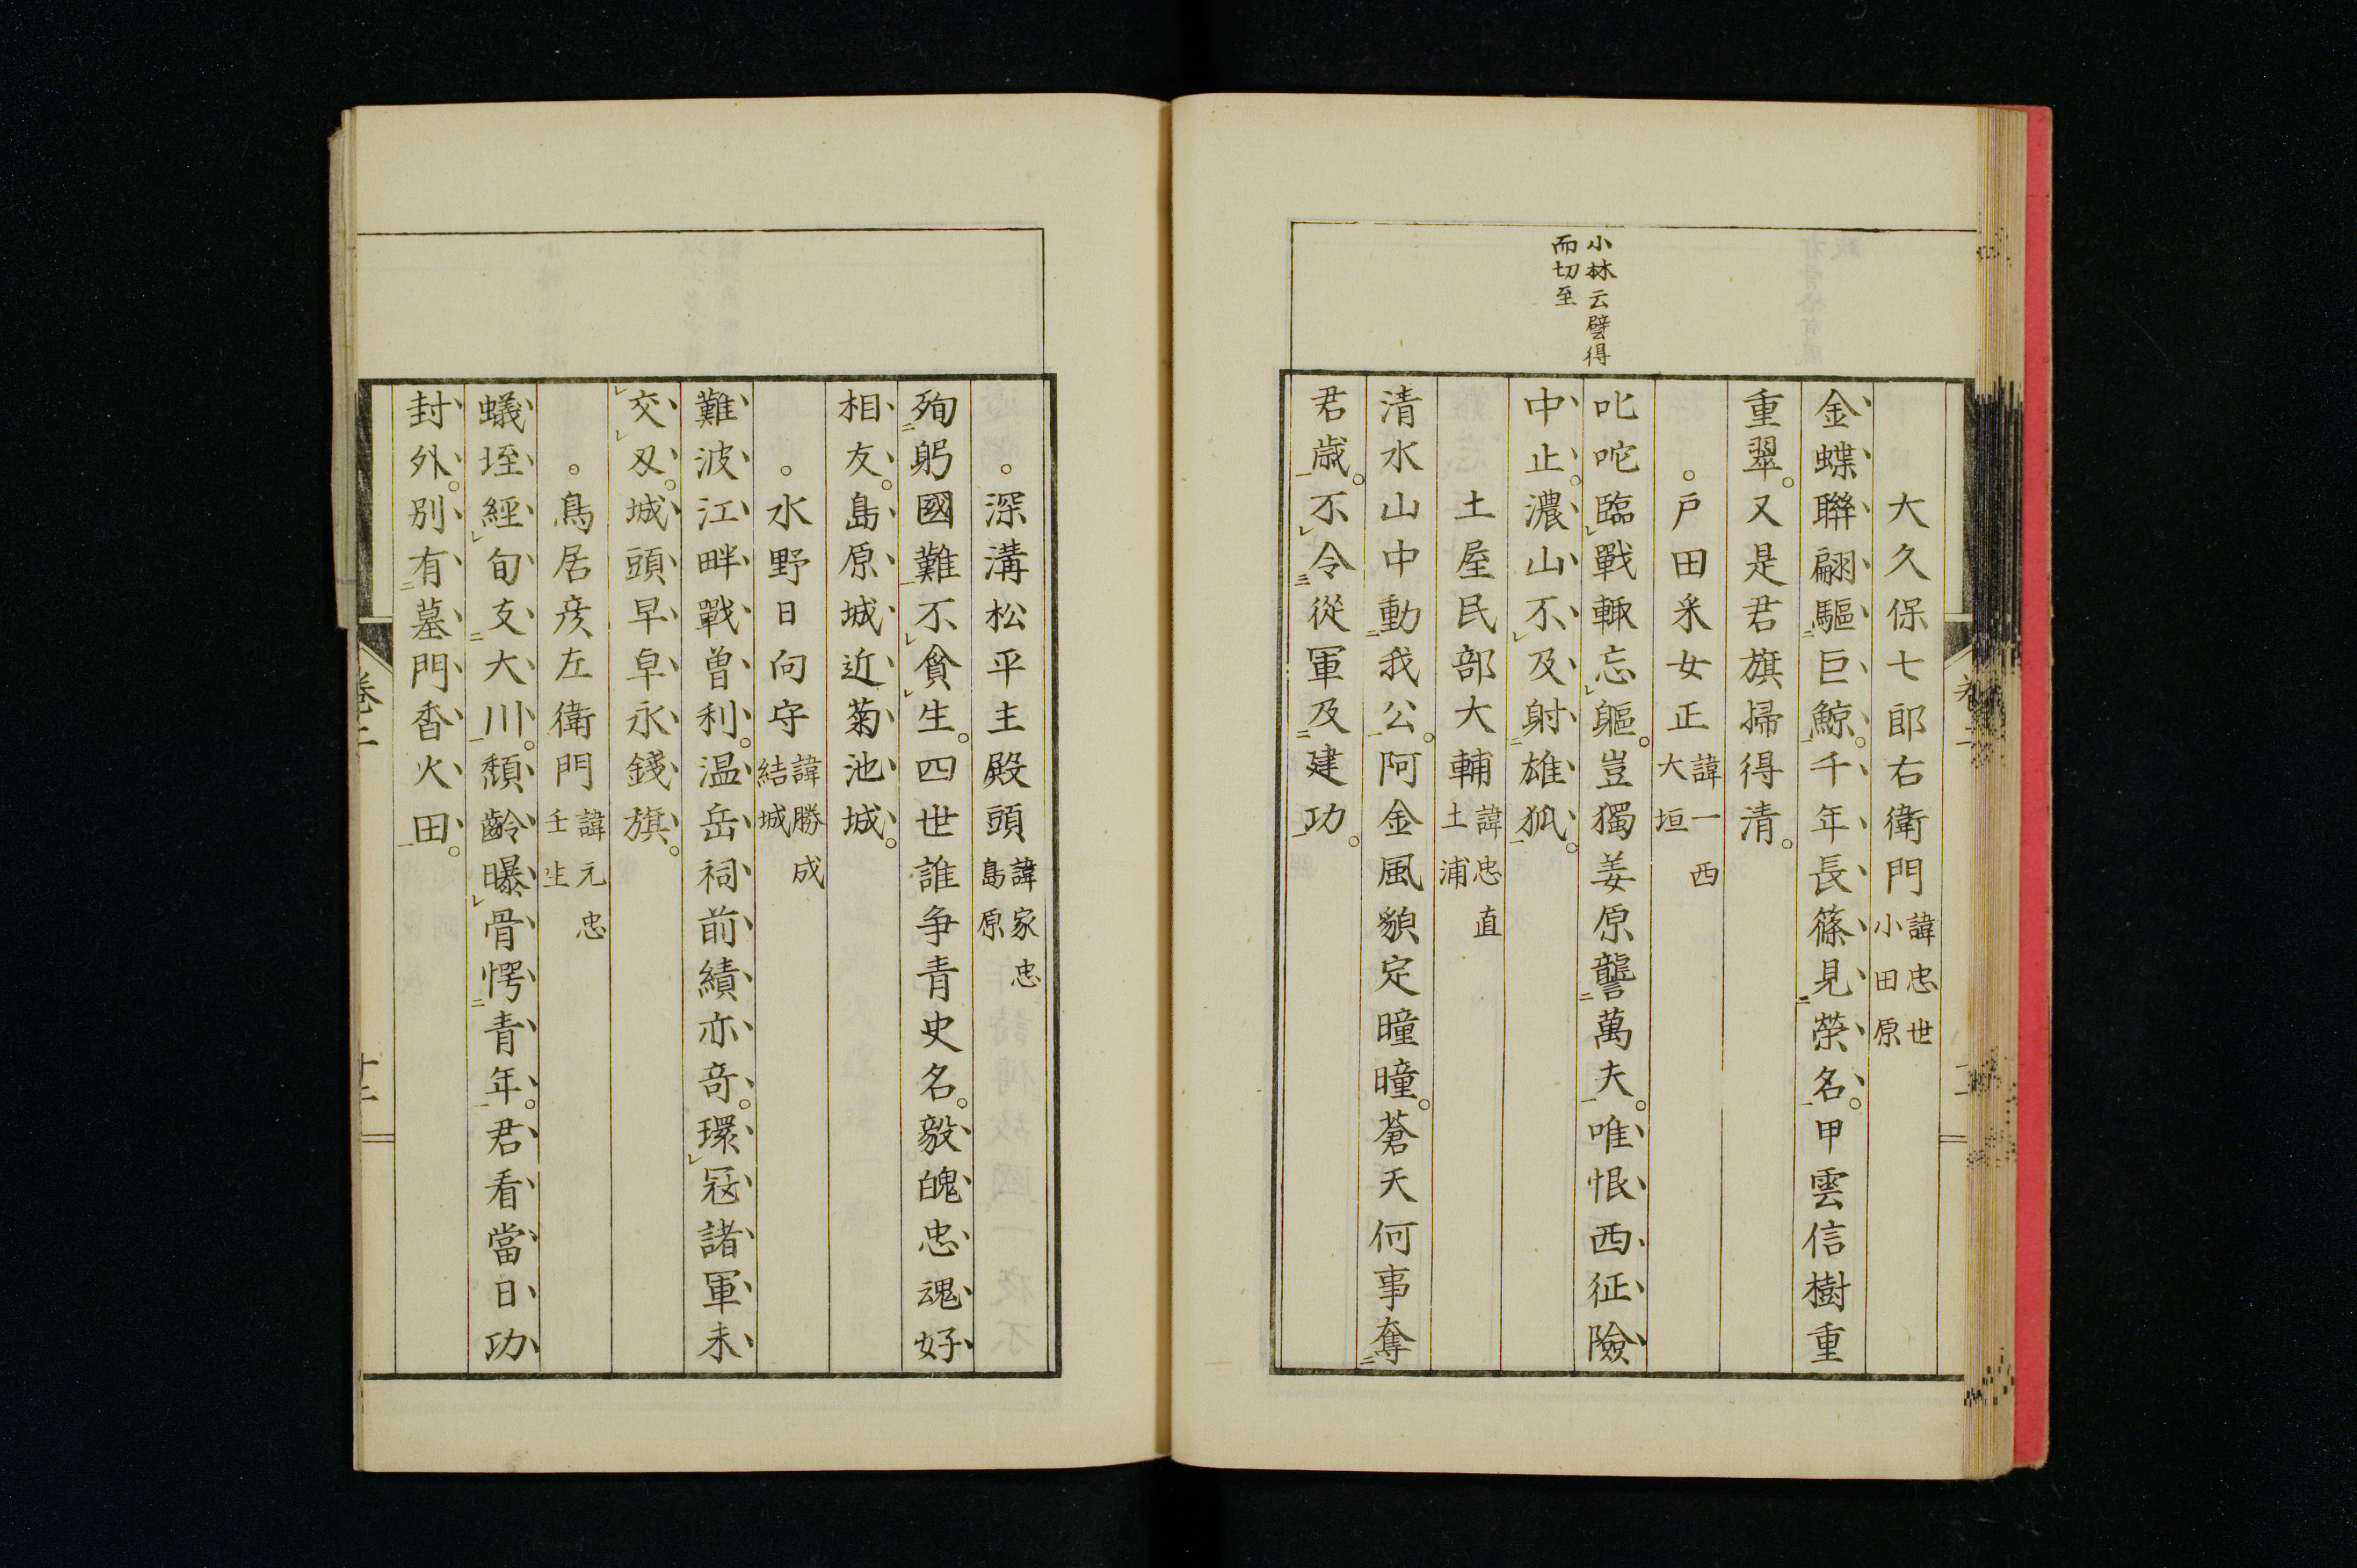 大久保七郎右衛門諱忠世小田原
金蝶聯翩驅巨鯨。千年長篠見榮名。甲雲信樹重
重翠。又是君旗掃得清。
。戸田釆女正諱一西大垣
小林云譬得
而切至
叱咤臨戰輙忘軀。豈獨姜原讋萬夫。唯恨西征險
中止。濃山不及射雄狐。
土屋民部大輔諱忠直土浦
清水山中動我公。阿金風貌定曈曈。蒼天何事奪
君歳。不令從軍及建功。
。深溝松平主殿頭諱家忠島原
殉躬國難不貪生。四世誰争青史名。毅魄忠魂好
相友。島原城近菊池城。
。水野日向守諱勝成結城
難波江畔戰曽利。温岳祠前績亦竒。環冦諸軍未
交刄。城頭早皁永錢旗。
。鳥居彦左衛門諱元忠壬生
蟻垤經旬支大川。頽齡曝骨愕青年。君看當日功
封外。別有墓門香火田。
卷二
十二